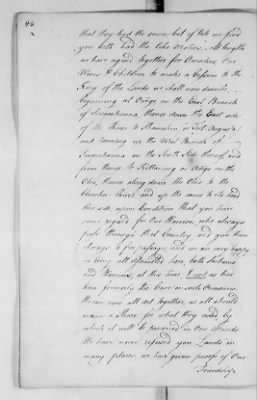 46
that they had the same, but of late we find
you both had the like Motives. At length
we have agreed together for Ourselves Our
Wives & Children to make a Cession to the
King of the Lands we shall now describe,
beginning at Owege on the East Branch
of Susquehanna thence down the East side
of the River to Shamokin or Fort Augusta
and running up the West Branch of
Susquehanna on the South Side thereof, and
from thence to Kittaning or Adigo on the
Ohio, thence along down the Ohio to the
Cherokee River, and up the same to its Head
this side, upon Condition that you have
some regard for Our Warriors, who always
pass through that Country and give them
always a free passage, and we are very happy
in being all Assembled here, both Sachims
and Warriors, at this time, & not, as has
been formerly the Case on such Occasions.
We can now all act together, as all should
have a Share for what they cede by
which it will be preserved in Our Minds.
We have never refused you Lands in
many places, we have given proofs of Our
Friendship